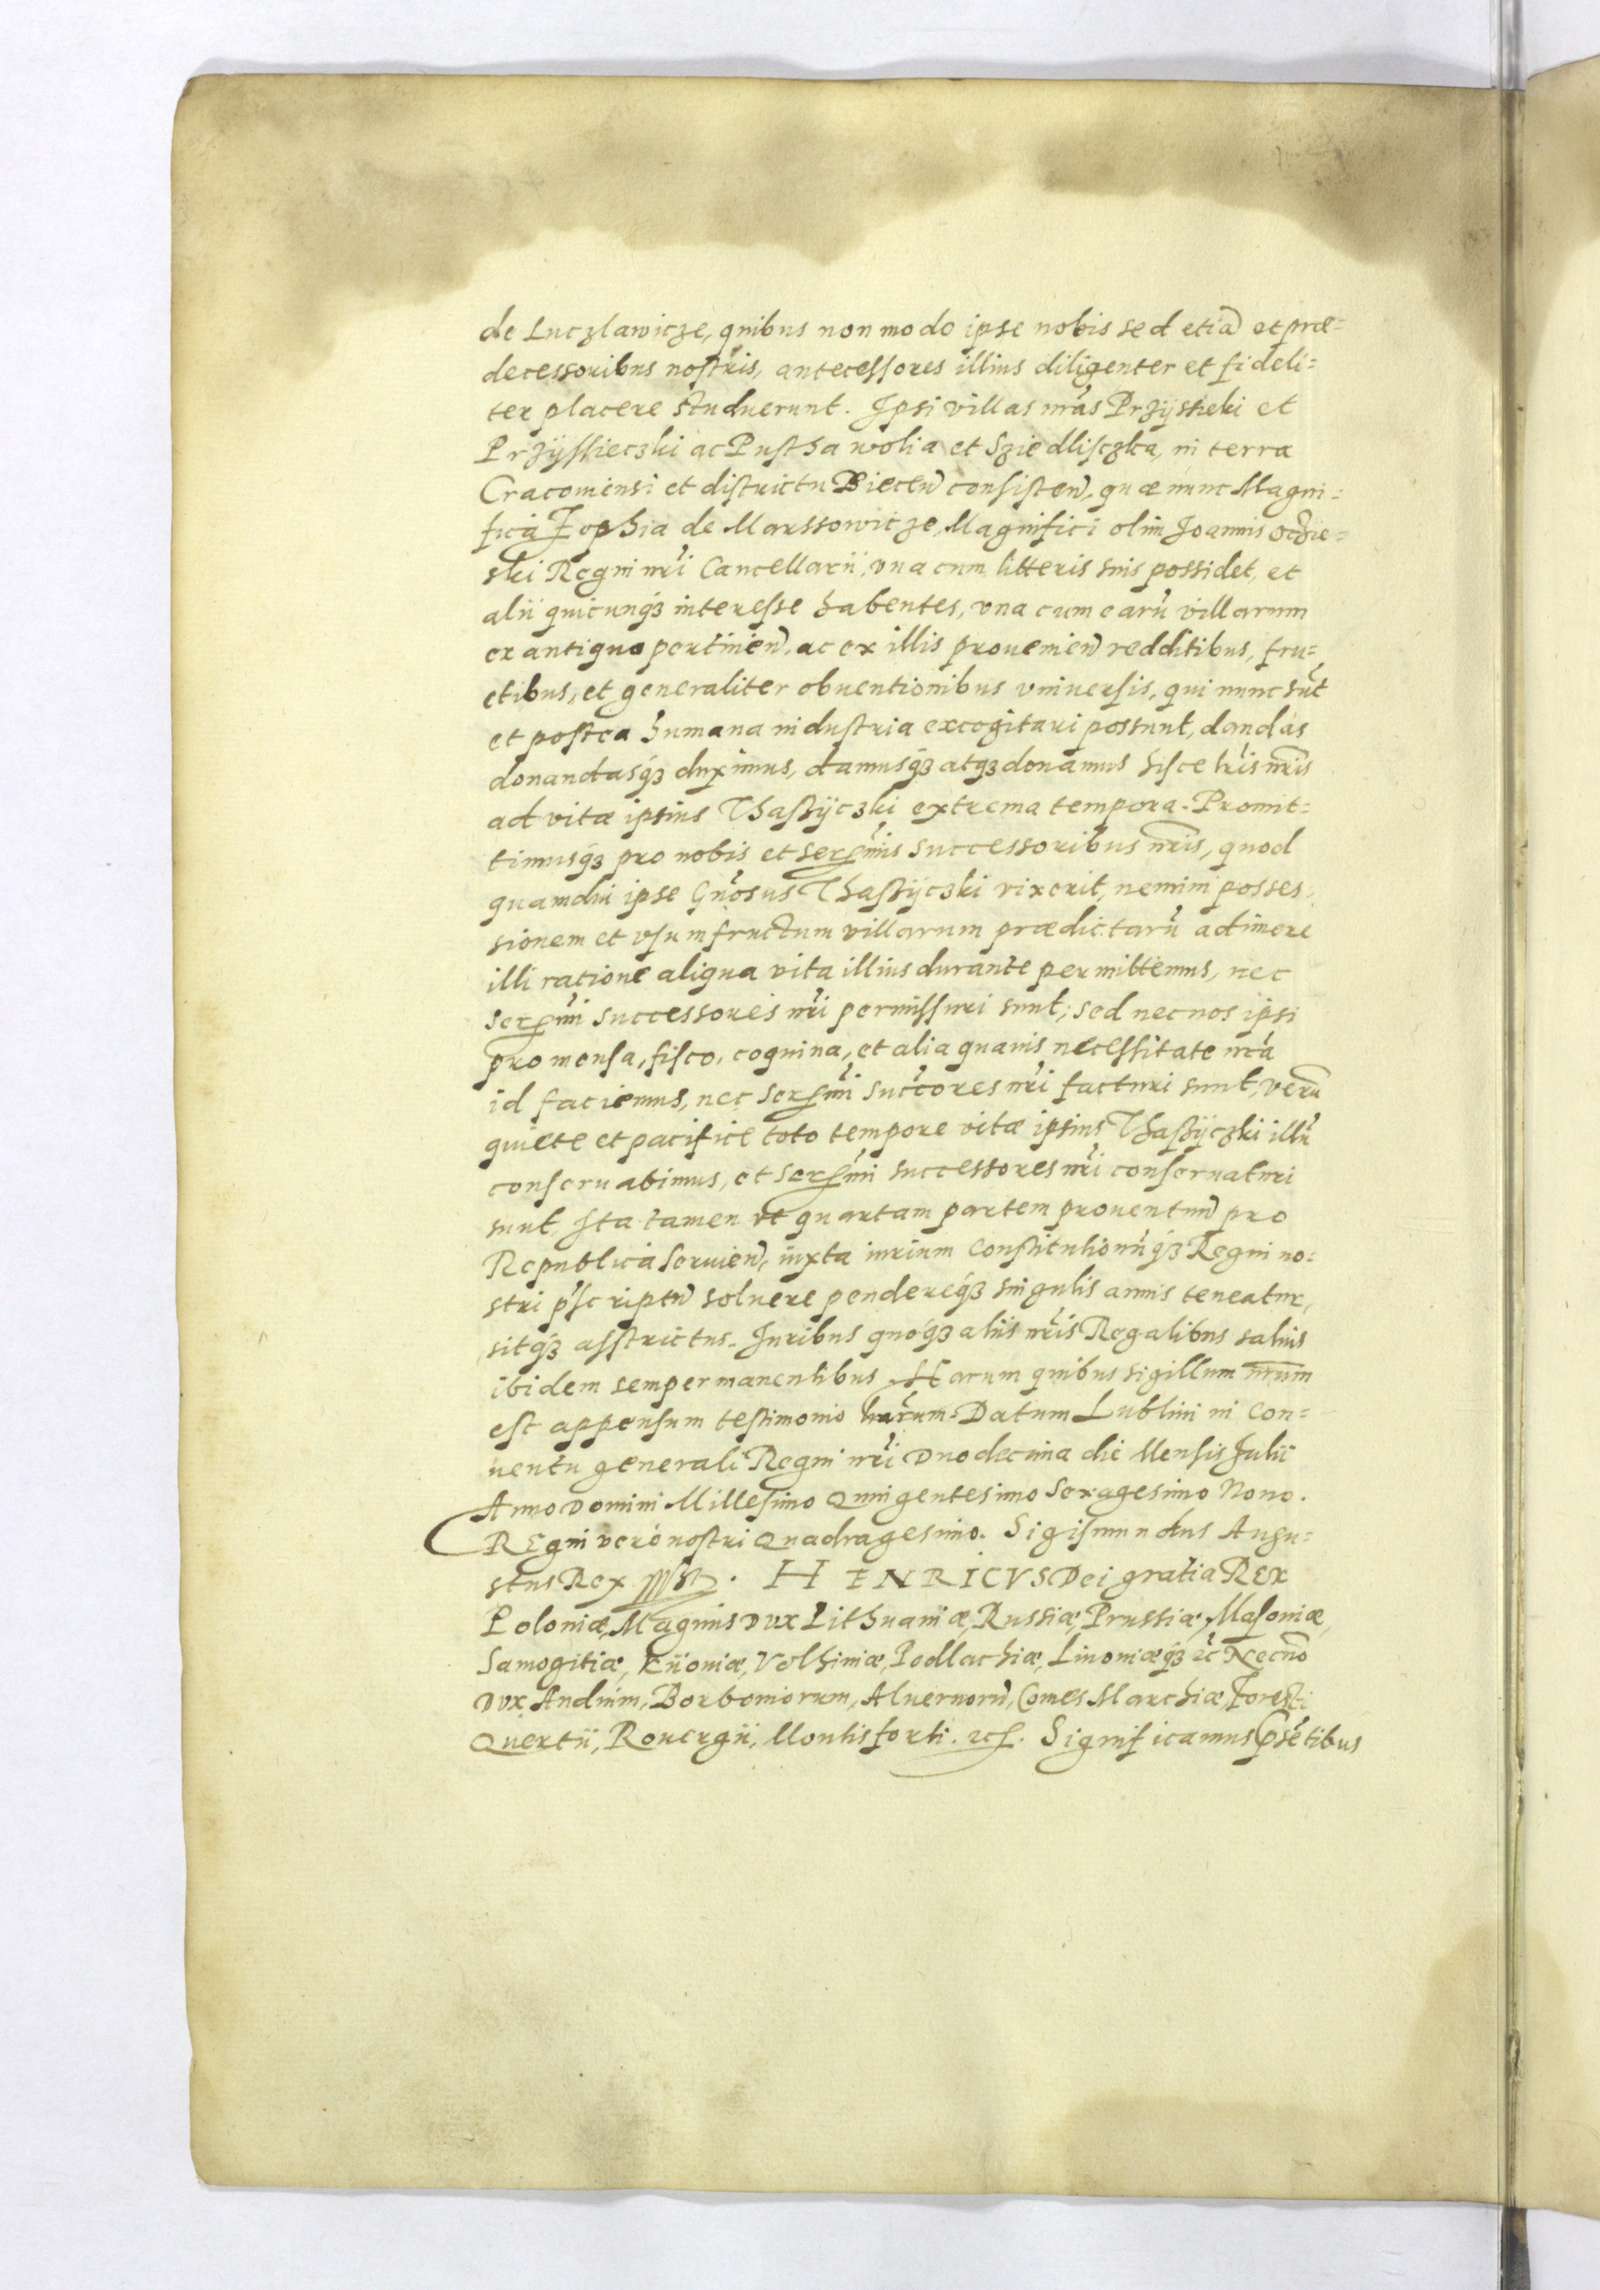 de Luczlawicze, quibus non modo ipse nobis sed etiā et præ=
decessoribus nostris, antecessores illius diligenter et fideli=
ter placere studuerunt. Ipsi villas nr̃as Przÿsheki et
Przÿssieczki ac Pustha wolia et Sziedlisczka, in terra
Cracouiensi et districtu Biecen̄ consisten̄, quæ nunc Magni=
fica Zophia de Marssowicze, Magnifici olim Joannis oczie=
ski Regni nr̃i Cancellarii, vna cum litteris suis possidet, et
alii quicunqꝫ interesse habentes, vna cum earū villarum
ex antiquo pertinien̄, ac ex illis prouenien̄ redditibus, fru=
ctibus, et generaliter obuentionibus vniuersis, qui nunc sūt
et postea humana industria excogitari possunt, dandas
donandasqꝫ duximus, damusqꝫ atqꝫ donamus hisce lr̃is nr̃is
ad vitæ ipsius Thaßÿczki extrema tempora. Promit=
timusqꝫ pro nobis et Ser̃mis successoribus nr̃is, quod
quamdiu ipse Gn̄osus Thaßÿczki vixerit, nemini posses,
sionem et vsumfructum villarum prædictarū adimere
illi ratione aliqua vita illius durante permittemus, nec
Ser̃mi successores nr̃i permissuri sunt; sed nec nos ipsi
pro mensa, fisco, coquina, et alia quauis necessitate nr̃a
id faciemus, nec Ser̃mi succ̃ores nr̃i facturi sunt, verū
quiete et pacifice toto tempore vitæ ipsius Thaßÿczki illū
conseruabimus, et Ser̃mi successores nr̃i conseruaturi
sunt, Ita tamen vt quartam partem prouentuū pro
Republica seruien̄, iuxta iurium Constitutionūqꝫ Regni no=
stri p̃scriptū soluere pendereqꝫ singulis annis teneatur,
sitqꝫ asstrictus. Iuribus quoqꝫ aliis nr̃is Regalibus saluis
ibidem semper manentibus Harum quibus sigillum nr̃um
est appensum testimonio lr̃arum. Datum Lublini in Con=
uentu generali Regni nr̃i Duodecima die Mensis Julii
Anno Domini Millesimo Quingentesimo Sexagesimo Nono.
REgni vero nostri Quadragesimo. Sigismundus Augu=
stus Rex. HENRICVS Dei gratia REX
Poloniæ, Magnus Dux Lithuaniæ, Russiæ, Prussiæ, Masoniæ,
Samogitiæ, Kiioniæ, Volhiniæ, Podlachiæ, Liuoniæqꝫ ꝛc̃ Necnō
Dux Andium, Borboniorum, Aluernorū, Comes Marchiæ Foresti
Quertii, Rouergii, Montisforti. ꝛc. Significamus p̃sētibus